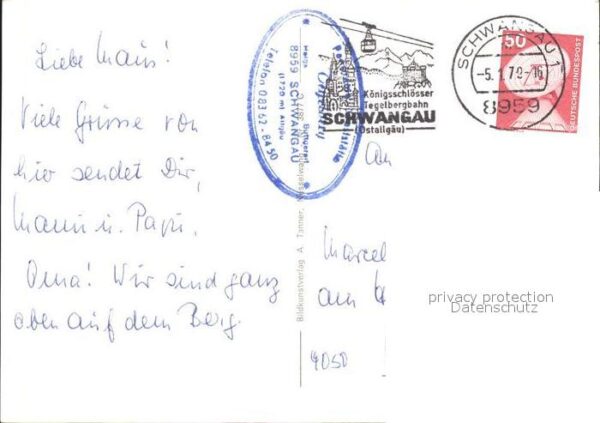 Liebe Maus!
Viele Grüsse von
hier sendet Dir,
Mami u. Papi,
Oma! Wir sind ganz
oben auf dem Berg.
8959 SCHWANGAU
(1720 m) Allgäu
Telefon 08362-8450
Königsschlösser
Tegelbergbahn
SCHWANGAU
(Ostallgäu)
SCHWANGAU 1
-5.1.79-16
8959
50
DEUTSCHE BUNDESPOST
Bildkunstverlag A. Tanner, Nesselwang
An
Marcel
am
4050
privacy protection
Datenschutz